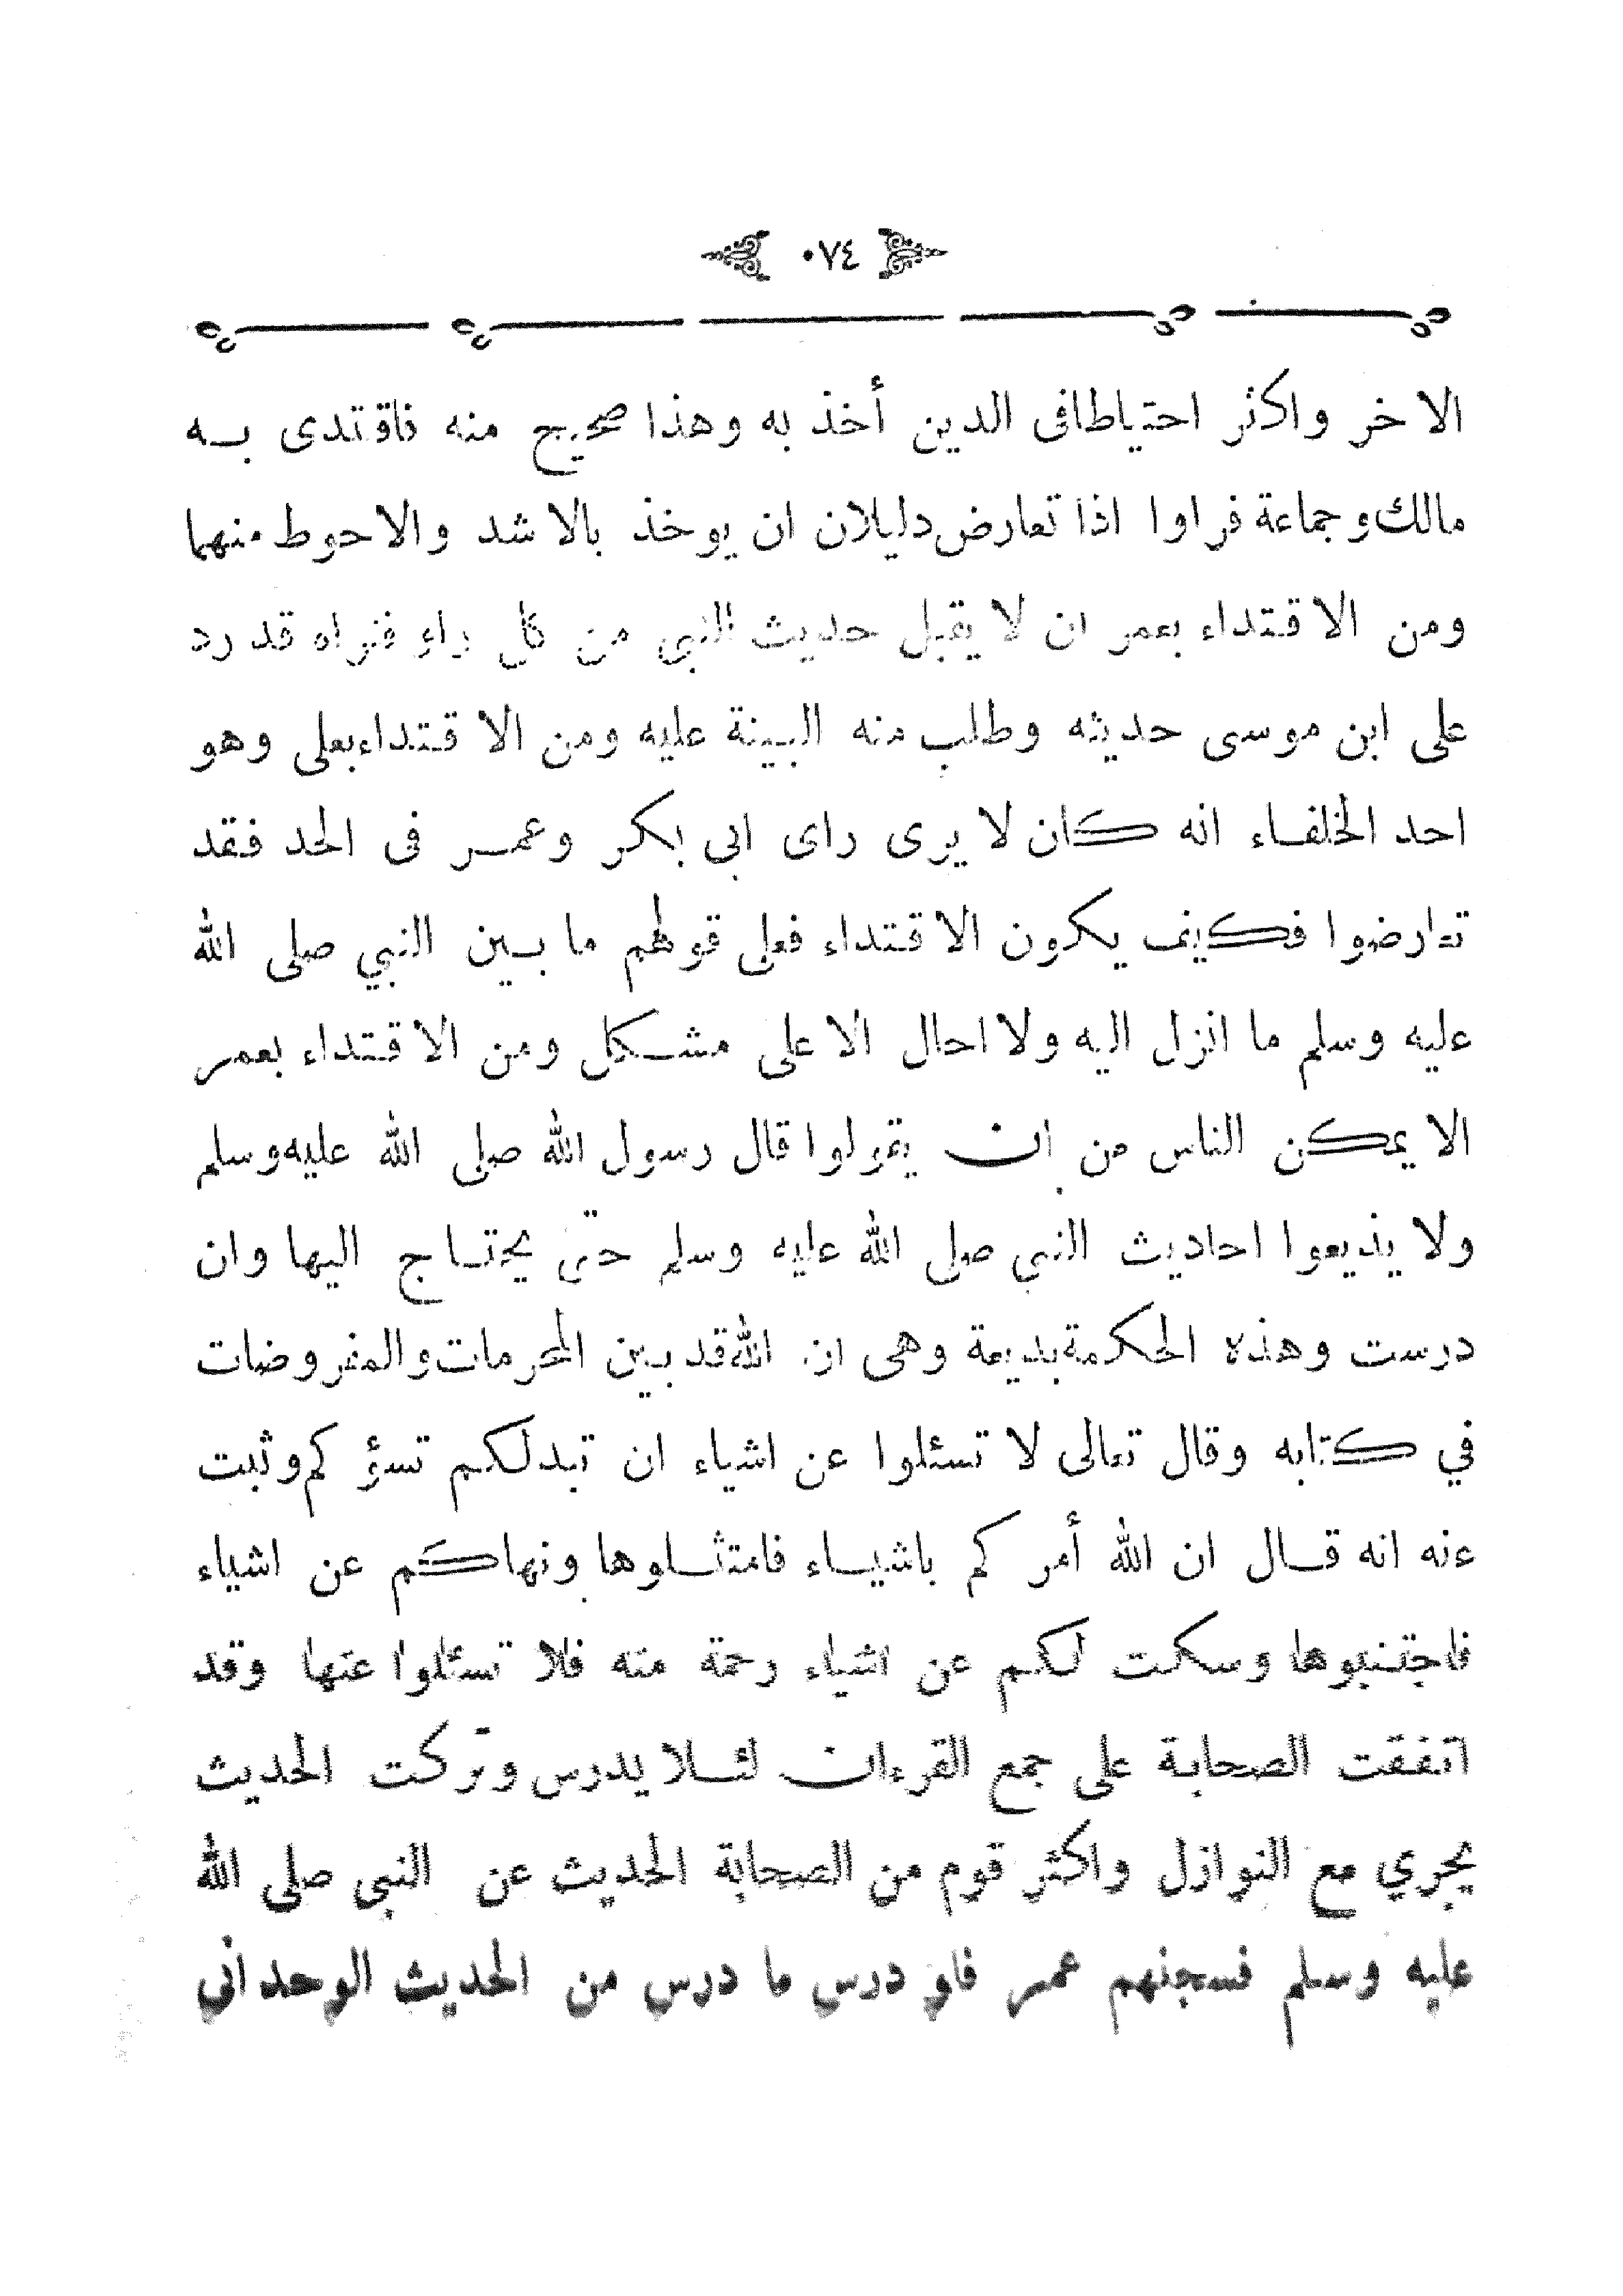 ٠٧٤
الاخر واكثر احتياطا فى الدين أخذ به وهذا صحيح منه فاقتدى به
مالك وجماعة فراوا اذا تعارض دليلان ان يوخذ بالاشد والاحوط منهما
ومن الاقتداء بعمر ان لا يقبل حديث النبى من كل راو فنراه قد رد
على ابن موسى حديثه وطلب منه البينة عليه ومن الاقتداء بعلى وهو
احد الخلفاء انه كان لا يرى راى ابى بكر وعمر فى الحد فقد
تعارضوا فكيف يكون الاقتداء فعلى قولهم ما بين النبي صلى الله
عليه وسلم ما انزل اليه ولا احال الا على مشكل ومن الاقتداء بعمر
الا يمكن الناس من ان يقولوا قال رسول الله صلى الله عليه وسلم
ولا يذيعوا احاديث النبى صلى الله عليه وسلم حتى يحتاج اليها وان
درست وهذه الحكمة بديعة وهى ان الله قد بين المحرمات والمفروضات
في كتابه وقال تعالى لا تسئلوا عن اشياء ان تبدلكم تسؤكم وثبت
عنه انه قال ان الله أمركم باشياء فامتثلوها ونهاكم عن اشياء
فاجتنبوها وسكت لكم عن اشياء رحمة منه فلا تسئلوا عنها وقد
اتفقت الصحابة على جمع القرءان لئلا يدرس وتركت الحديث
يجري مع النوازل واكثر قوم من الصحابة الحديث عن النبى صلى الله
عليه وسلم فسجنهم عمر فاو درس ما درس من الحديث الوحدانى